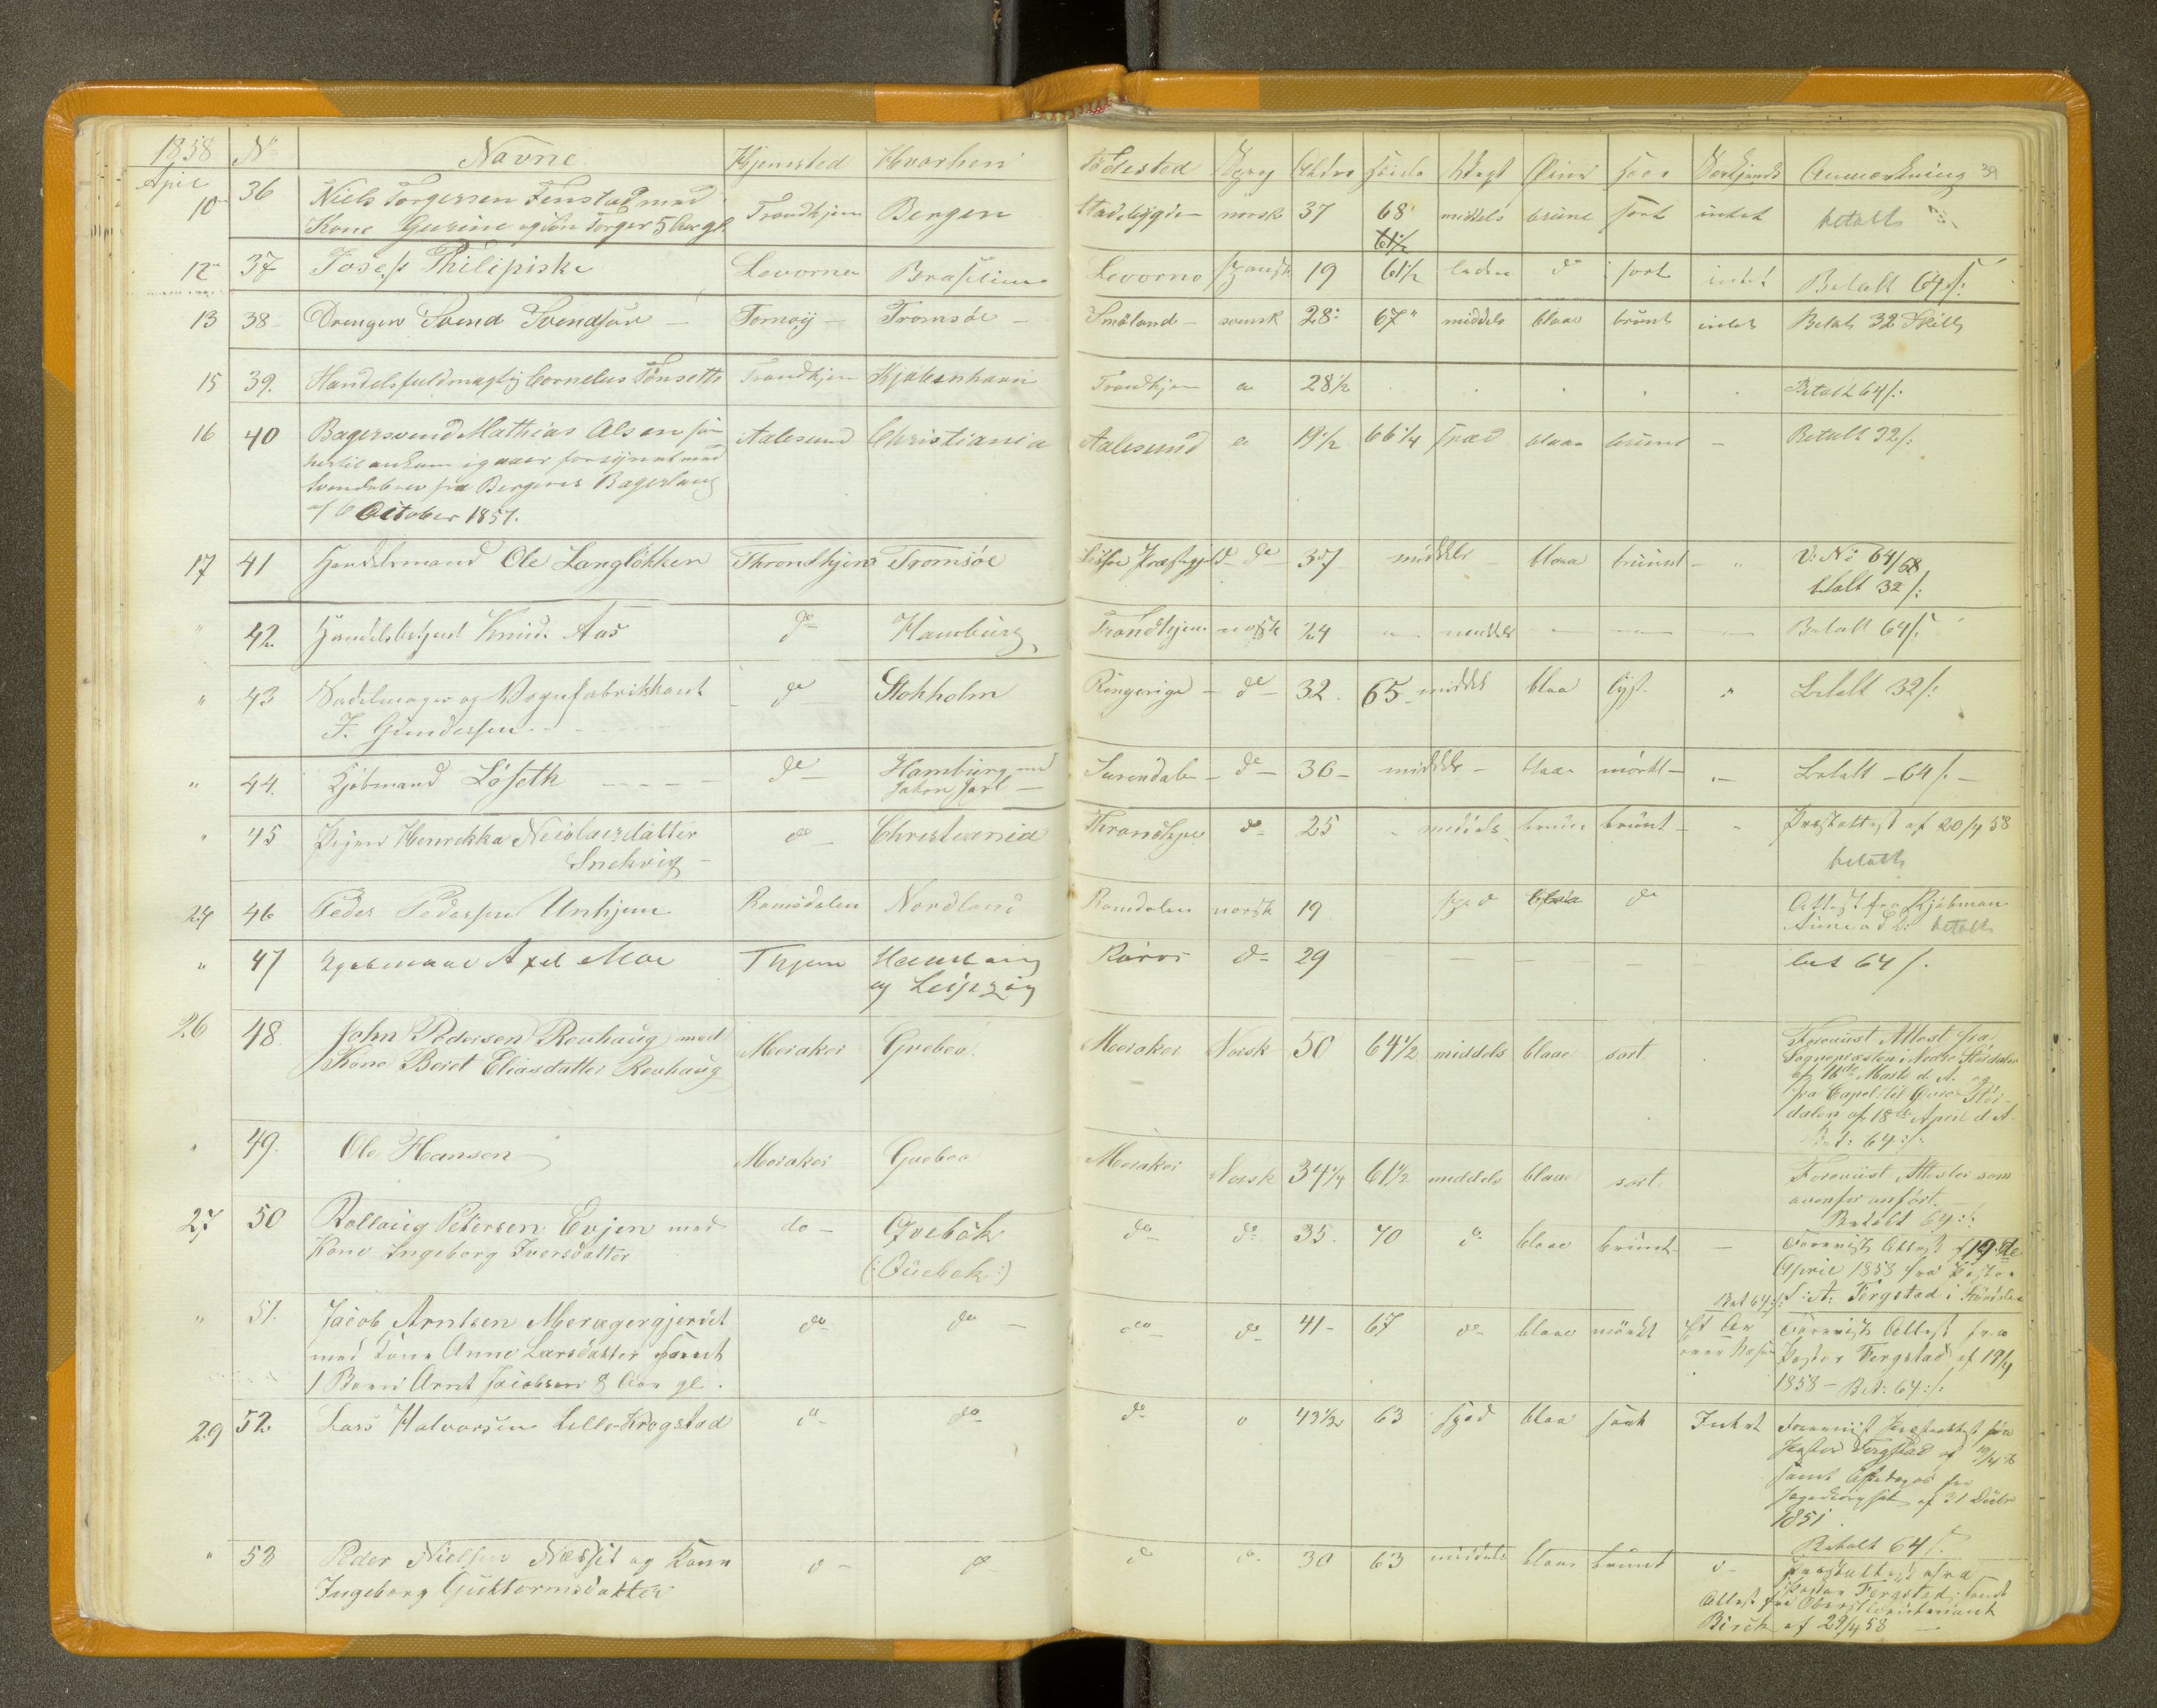 1858 No Navne Hjemsted Hvorhen Födested Sprog Alder Höide Vægt Öine Haar Anmærkning 39
April
10 36 Niels Torgersen Fenstad med Trondhjem Bergen Stadsbygden norsk 37 68 middels brune sort intet betalt
Kone Gurine og Sön Torger 5 Aar gl. 61½
12 37 Josef Philipiske Levorno Levorno 19 61½ do sort intet Betalt 64 s:
13 38 Drengen Svend Svendsen Tromsöe Småland svensk 28 67 middels blaae brunt intet Betalt 32 Skill
15 39. Handelsfuldmægtig Cornelus Tönseth Trondhjem Kjøbenhavn Trondhjem 28½ Betalt 64 s:
16 40 Bagersvend Mathias Alsen som Aalesund Christiania Aalesund 19½ 66¼ spæd blaae brunt - Betalt 32 s:
hertil ankom igaaer forsynet med
Svendebrev fra Bergens Bagerlaug
af 6 October 1857.
17 41 Handelsmand Ole Langlökken Throndhjem Tromsöe do 37 middels blaae brunt V: No 64/58
betalt 32 s:
" 42. Handelsbetjent Knud Aas do Hamburg Trondhjem norsk 24 middels Betalt 64 s:
" 43 Sadelmager og Vognfabrikkant do Stokholm Ringerige do 32. 65 middels blaa lyst " betalt 32 s:
F. Gundersen
" 44. Kjöbmand Löseth do Hamburg med Surendalen do 36 middels blaae mörkt betalt 64 s.
Hakon Jarl
" 45 Pigen Henrikka Nicolaisdatter do Christiania Throndhjem do 25 middels brune brunt Præstattest af 20/4 58
Snekvig betalt
24 46 Peder Pedersen Unhjem Romsdalen Nordland Romsdalen norsk 19 spæd blaa do Attest fra Kjöbman
betalt
" 47 Kjøbmand Axel Moe Thjem Hamburg Röros do 29 bet 64 s.
og Leipzig
26 48. John Pedersen Renhaug med Meraker Qvebec Meraker Norsk 50 64½ middels blaae sort Foreviist Attest fra
Kone Beret Eliasdatter Renhaug Sognepræsten i Nedre Stördalen
af 16de Marts d. A. og
fra Capel: til Övre Stör-
dalen af 18de April d. A.
Bet: 64 s:
" 49. Ole Hansen Meraker Quebec Meraker Norsk 34¼ 61½ middels blaae sort. Foreviist Attester som
ovenfor anfört.
Betalt 64 s:
27 50 Rollaug Petersen Evjen med do Qvebök do do 35. 70 do blaae brunt Foreviist Attest af 19de
Kone Ingeborg Iversdatter (: Quebek :) April 1858 fra Pastor
Bet 64 s: S. A. Fergstad i Stördalen
" 51. Jacob Arntsen Meragergjerdet do do do do 41 67 do blaae mörkt Et Ar Foreviist Attest fra
med Kone Anne Larsdatter samt over Næsen Pastor Fergstad af 19/4
1 Barn Arnt Jacobsen 8 Aar gl. 1858 Bet: 64 s:
29 52. Lars Halvorsen Lille-Krogstad do do do 43½ 63 spæd blaa sort Intet Foreviist Præsteattest fra
Pastor Fergstad af 19/4 58
samt
af 31 Decbr
1851.
Betalt 64 s.
" 53 Peder Nielsen Næsset og Kone do do do do 30 63 middels blaae brunt do Præstattest fra
Ingeborg Guttormsdatter Pastor Fergstad samt
Attest fra Oberstlieutenant
Birch af 29/4 58